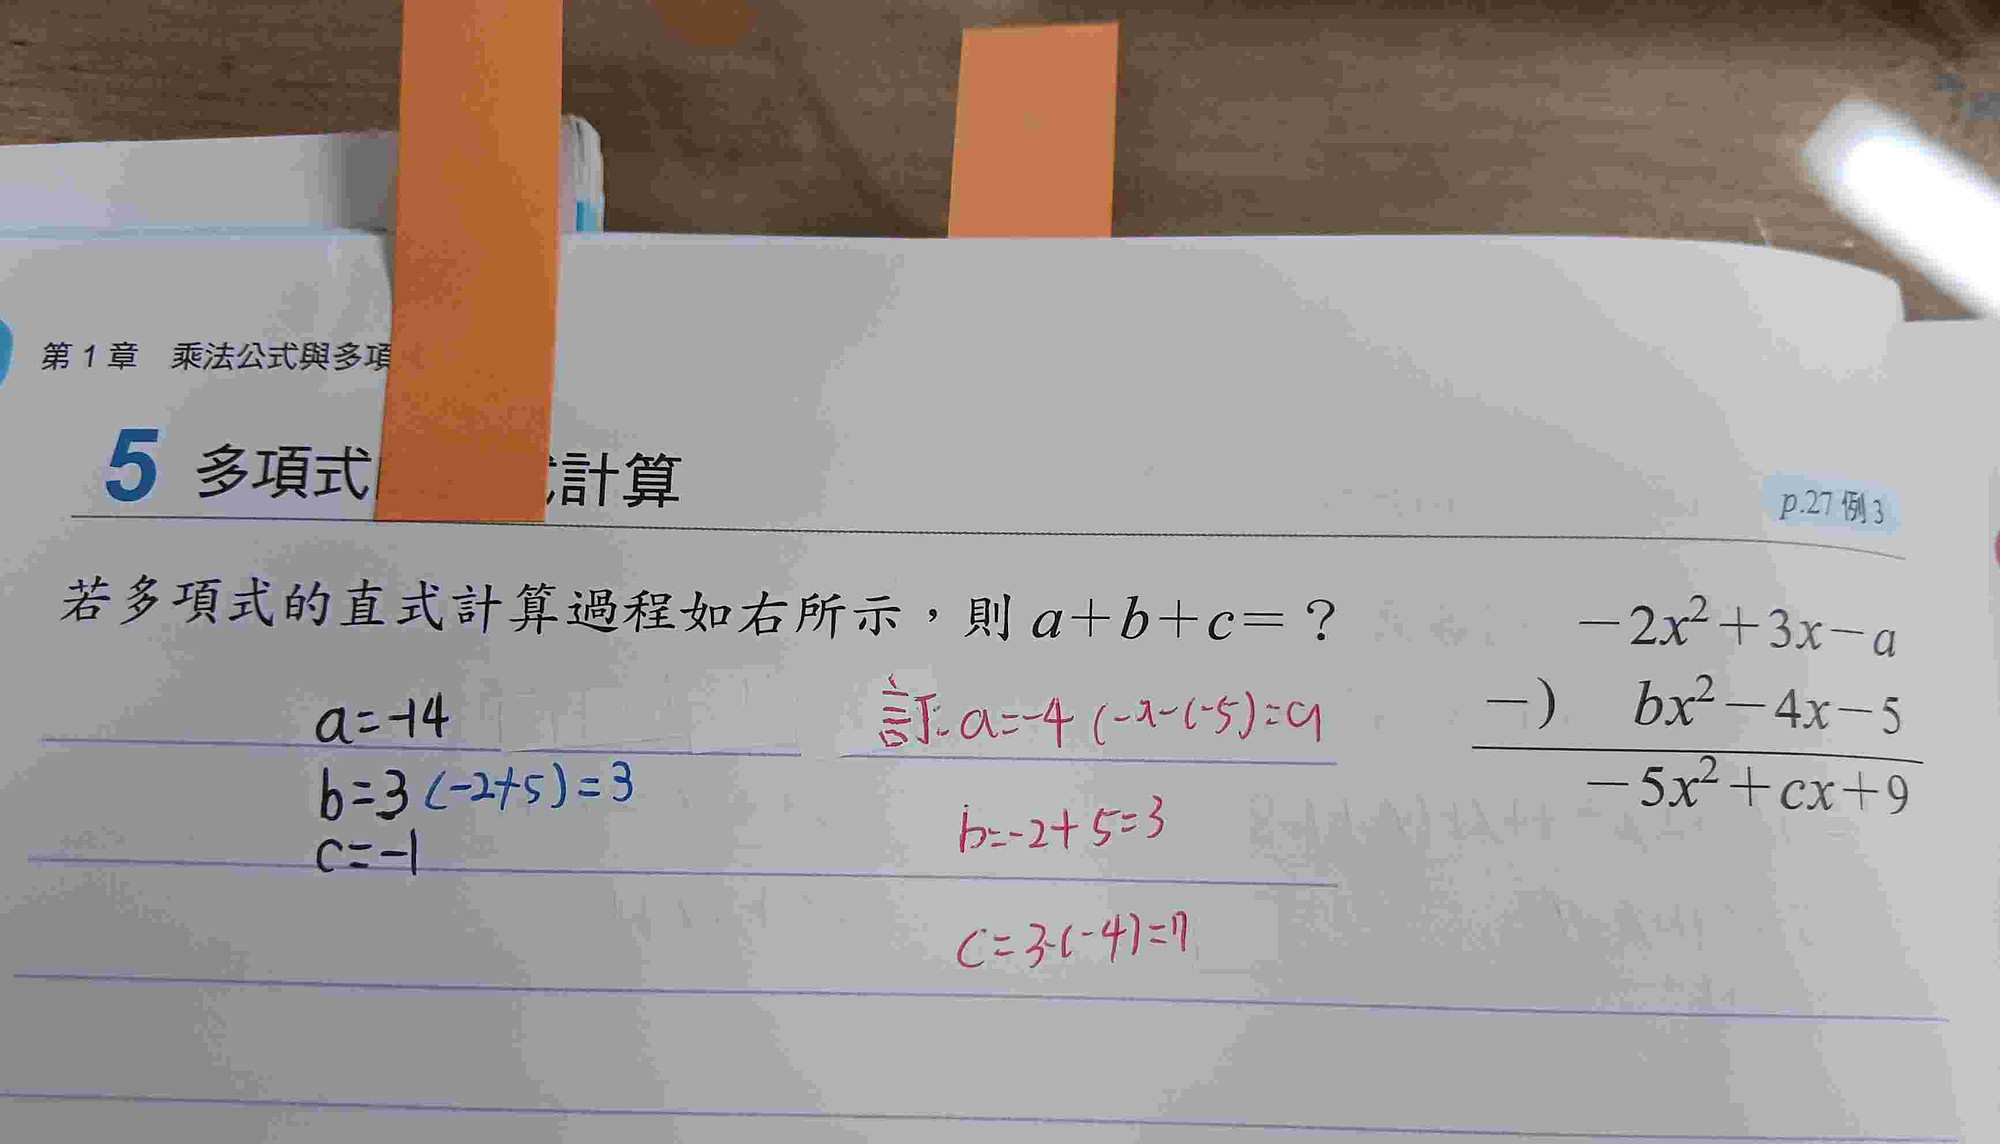 第 1 章 乘法公式與多項
5 多項式 計算
p.27 例3
若多項式的直式計算過程如右所示，則 a+b+c=？
-2x²+3x-a
-) bx²-4x-5
-5x²+cx+9
a=-14
b=3 (-2+5)=3
c=-1
訂: a=-4 (-a-(-5)=9
b=-2+5=3
c=3-(-4)=7